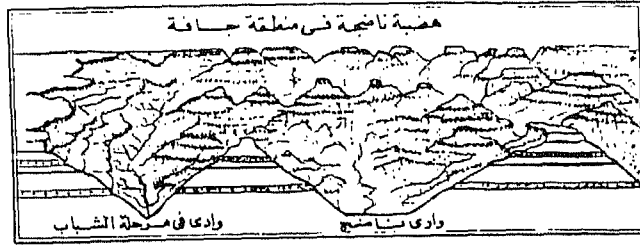 هضبة ناضجة فى منطقة جافة
وادى فى مرحلة الشباب
وادى ناضج